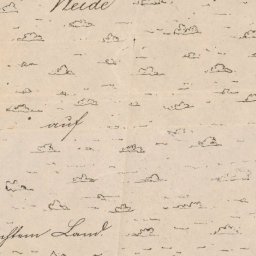 Heide
auf
chtem Land.